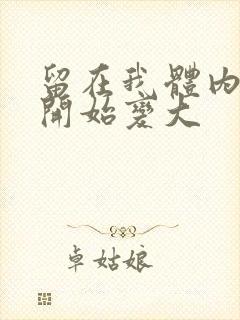 留在我體內
開始變大
卓姑娘